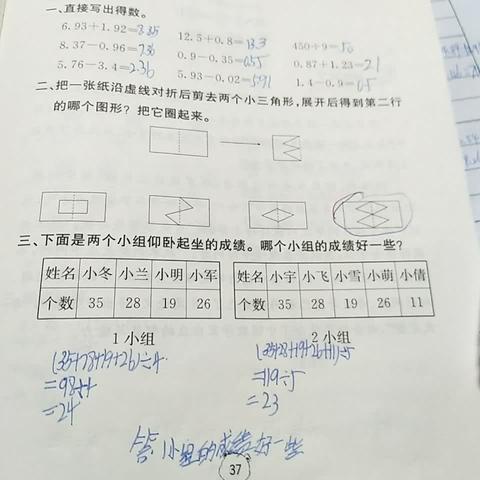 一、直接写出得数。
6.93+1.92=8.85 12.5+0.8=13.3 450÷9=50
8.37-0.96=7.36 0.9-0.35=0.55 0.87+1.23=2.1
5.76-3.4=2.36 5.93-0.02=5.91 1.4-0.9=0.5
二、把一张纸沿虚线对折后剪去两个小三角形,展开后得到第二行
的哪个图形?把它圈起来。
三、下面是两个小组仰卧起坐的成绩。哪个小组的成绩好一些?
姓名 小冬 小兰 小明 小军 姓名 小宇 小飞 小雪 小萌 小倩
个数 35 28 19 26 个数 35 28 19 26 11
1小组 2小组
(35+28+19+26)÷4 (35+28+19+26+11)÷5
=98÷4 =119÷5
=24 =23
答:1小组的成绩好一些
37